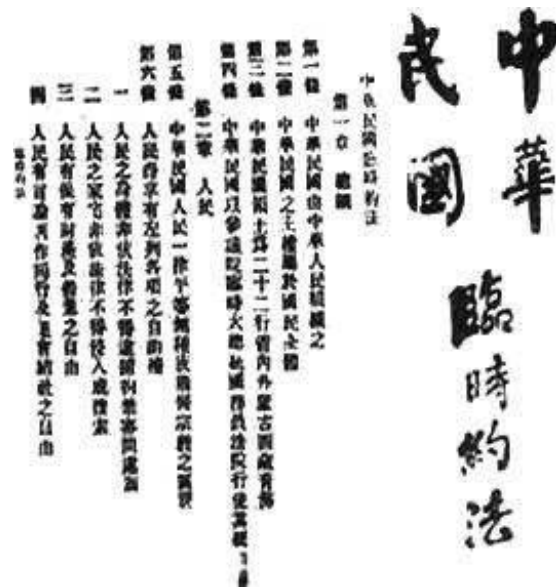 中華
民國
臨時約法
中華民國臨時約法
第一章 總綱
第一條 中華民國由中華人民組織之
第二條 中華民國之主權屬於國民全體
第三條 中華民國領土爲二十二行省內外蒙古西藏青海
第四條 中華民國以參議院臨時大總統國務員法院行使其統
第二章 人民
第五條 中華民國人民一律平等無種族階級宗教之區別
第六條 人民得享有左列各項之自由權
一 人民之身體非依法律不得逮捕拘禁審問處罰
二 人民之家宅非依法律不得侵入或搜索
三 人民有保有財產及營業之自由
四 人民有言論著作刊行及集會結社之自由